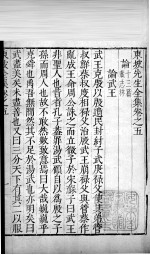 東坡先生全集卷之五
論
論武王
武王克殷以殷遺民封紂子武庚祿父使其弟管
叔鮮蔡叔度相祿父治殷武王崩祿父與管蔡作
亂成王命周公誅之而立微子於宋蘇子曰武王
非聖人也昔者孔子蓋罪湯武顧自以為殷之子
孫而周人也故不敢然數致意焉曰大哉巍巍乎
堯舜也禹吾無間然其不足於湯武也亦明矣曰
武盡美矣未盡善也又曰三分天下有其二以服